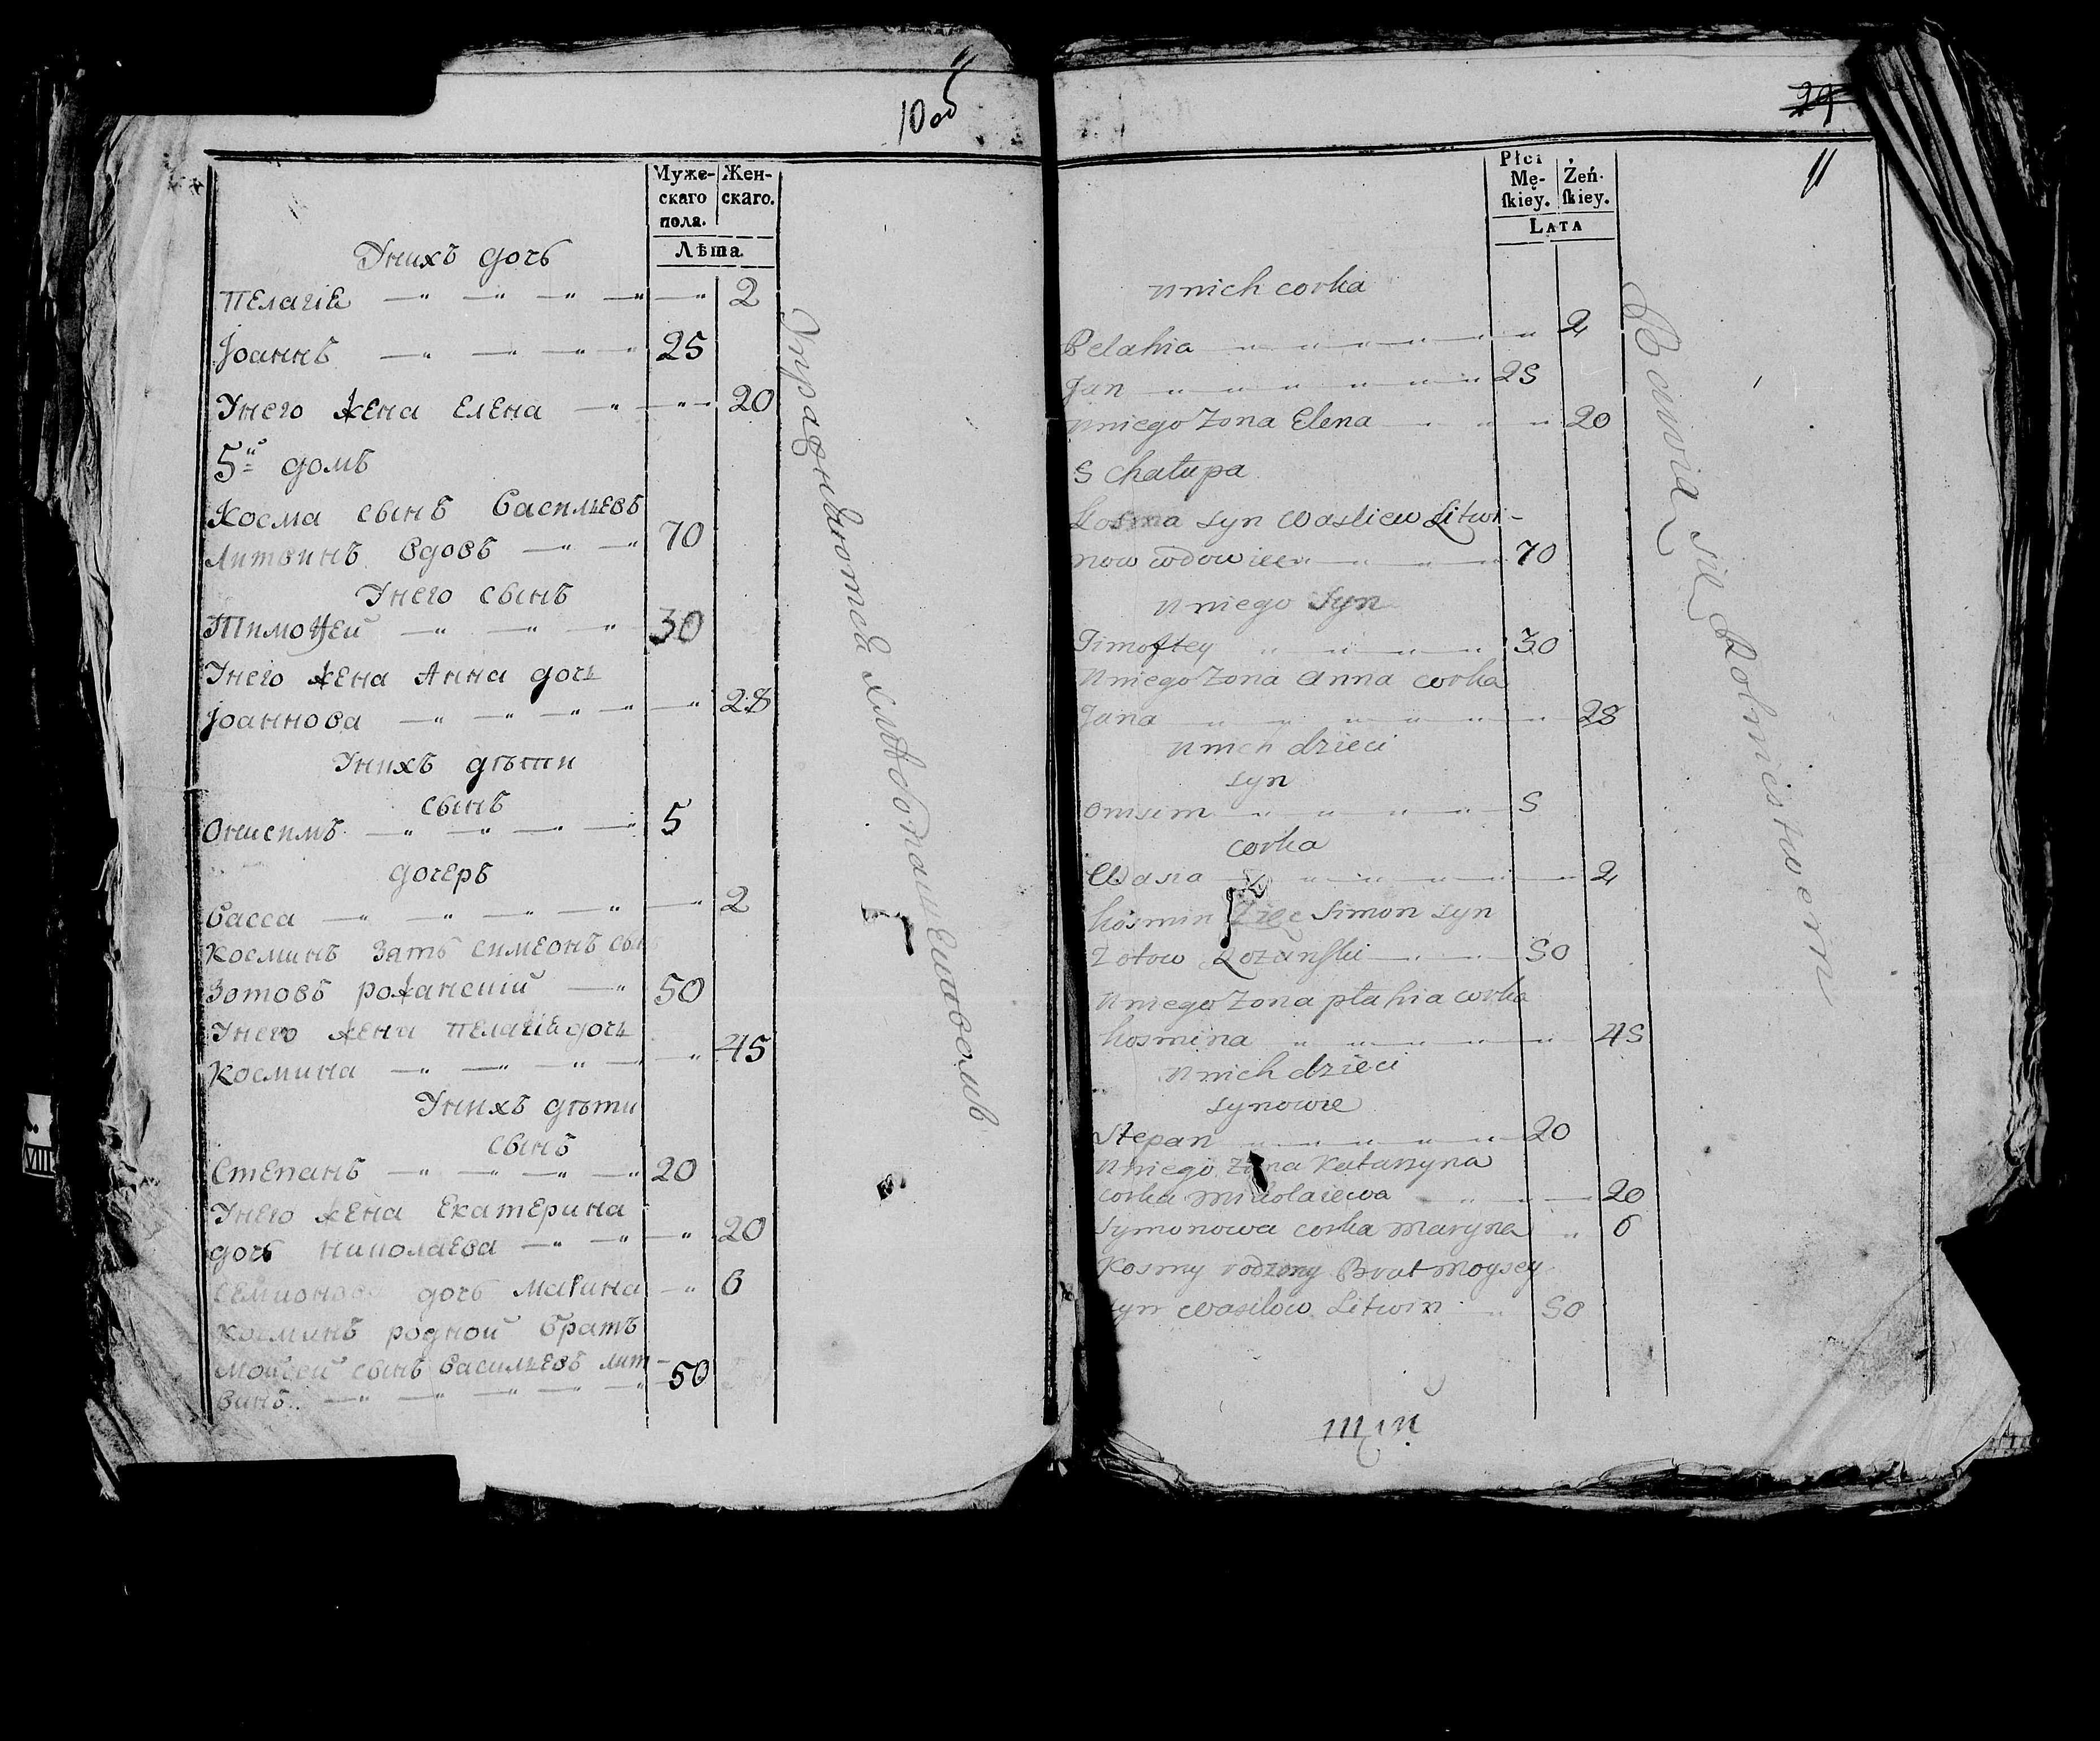 10 об
Мужескаго пола.
Женскаго.
Лѣта.
Унихъ дочь
Пелагіѧ —„ —„ —„ —„ —„ 2
Іоаннъ —„ —„ —„ —„ 25
Унего жена Елена —„ —„— 20
5й домъ
Косма сынъ Васильевъ
Литвинъ вдовъ —„ —„ 70
Унего сынъ
Тимоѳей —„ —„ —„ 30
Унего жена Анна дочь
Іоаннова —„ —„ —„ —„ —„ 28
Унихъ дѣти
сынъ
Онисимъ —„ —„ —„ —„ 5
дочерь
Васса —„ —„ —„ —„ —„ 2
Косминъ зять Симеонъ сынъ
Зотовъ рожанскій —„ 50
Унего жена Пелагіѧ дочь
Космина —„ —„ —„ —„ —„ 45
Унихъ дѣти
сынъ
Степанъ —„ —„ —„ —„ 20
Унего жена Екатерина
дочь Николаева —„ —„ —„ 20
Семионова дочь Марина —„ 6
Косминъ родной братъ
Мойсей сынъ Васильевъ лит-
винъ. —„ —„ —„ —„ —„ 50
Упражнѣются хлѣбопашествомъ
29
11
Płci Mę-
ſkiey.
Żeń-
ſkiey.
Lata
u nich corka
Pelahia —„—„—„—„—„—„ 2
Jan —„—„—„—„—„—„ 25
u niego Zona Elena —„ „ „ 20
5 Chałupa
Kosma syn Wasliew Litwi-
now wdowiec —„—„—„ 70
u niego Syn
Timoftey „—„—„—„ 30
u niego Zona Anna corka
Jana —„—„—„—„—„—„ 28
u nich dzieci
syn
Onisim —„—„—„—„—„ 5
corka
Wasa —„—„—„—„—„—„ 2
Kosmin Zięć Simon syn
Zotow Rozanſki —„—„ 50
u niego Zona płahia corka
Kosmina „—„—„—„—„ 45
u nich dzieci
synowie
Stepan —„—„—„—„—„ 20
u niego Zona Katarzyna
corka Mikołaiewa —„—„— 20
Symonowa corka Maryna „ 6
Kosmy rodzony Brat Moysey
syn Wasilow Litwin „ 50
Bawią się Rolnictwem